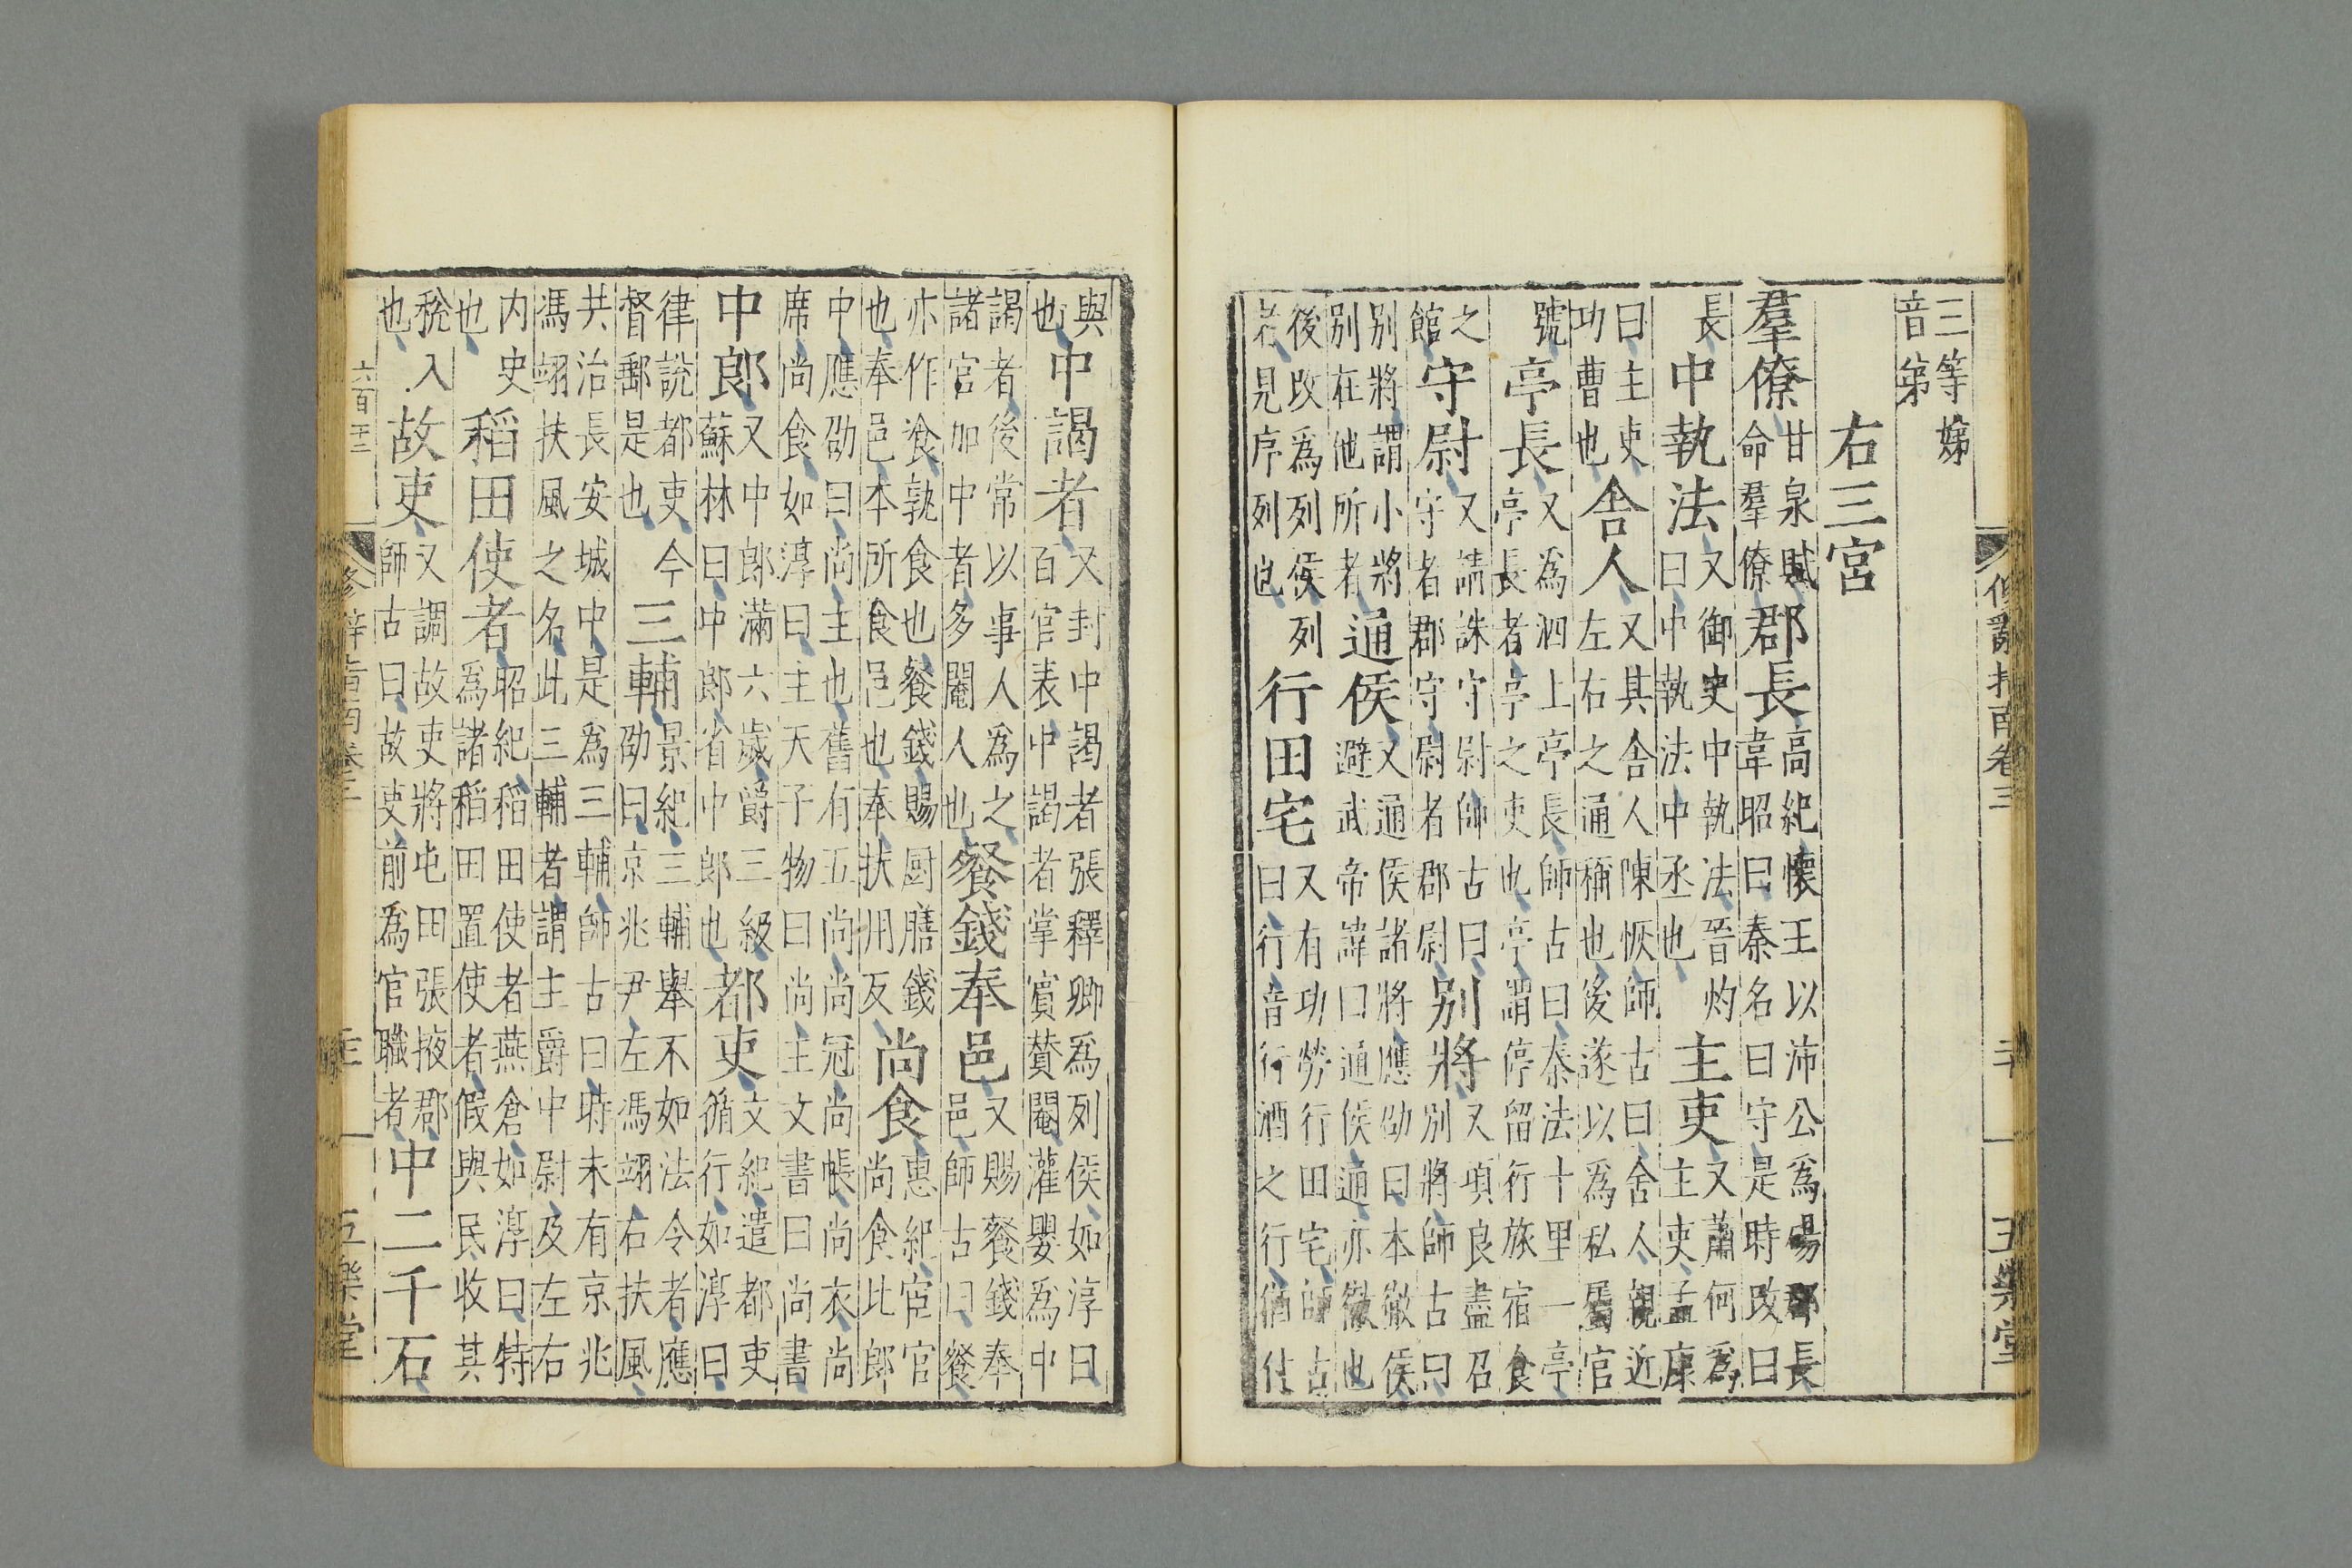 修辭指南卷三
三十
五樂堂
三等娣
音第
右三宮
羣僚
甘泉賦
命羣僚
郡長
高紀懷王以沛公爲碭郡長
韋昭曰秦名曰守是時改曰
長
中執法
又御史中執法晉灼
曰中執法中丞也
主吏
又蕭何爲
主吏孟康
曰主吏
功曹也
舍人
又其舍人陳恢師古曰舍人親近
左右之通稱也後遂以爲私屬官
號
亭長
又爲泗上亭長師古曰秦法十里一亭
亭長者亭之吏也亭謂停留行旅宿食
之
館
守尉
又請誅守尉師古曰
守者郡守尉者郡尉
別將
又項良盡召
別將師古曰
別將謂小將
別在他所者
通侯
又通侯諸將應劭曰本徹侯
避武帝諱曰通侯通亦徹也
後改爲列侯列
者見序列也
行田宅
又有功勞行田宅師古
曰行音行酒之行猶付
與
也
中謁者
又封中謁者張釋卿爲列侯如淳曰
百官表中謁者掌賓贊閹灌嬰爲中
謁者後常以事人爲之
諸官加中者多閹人也
餐錢奉邑
又賜餐錢奉
邑師古曰餐
亦作飡孰食也餐錢賜厨膳錢
也奉邑本所食邑也奉扶用反
尚食
惠紀宦官
尚食比郎
中應劭曰尚主也舊有五尚尚冠尚帳尚衣尚
席尚食如淳曰主天子物曰尚主文書曰尚書
中郎
又中郎滿六歲爵三級
蘇林曰中郎省中郎也
都吏
文紀遣都吏
循行如淳曰
律說都吏今
督郵是也
三輔
景紀三輔舉不如法令者應
劭曰京兆尹左馮翊右扶風
共治長安城中是爲三輔師古曰時未有京兆
馮翊扶風之名此三輔者謂主爵中尉及左右
內史
也
稻田使者
昭紀稻田使者燕倉如淳曰特
爲諸稻田置使者假與民收其
稅入
也
故吏
又調故吏將屯田張掖郡
師古曰故吏前爲官職者
中二千石
修辭指南卷三
五樂堂